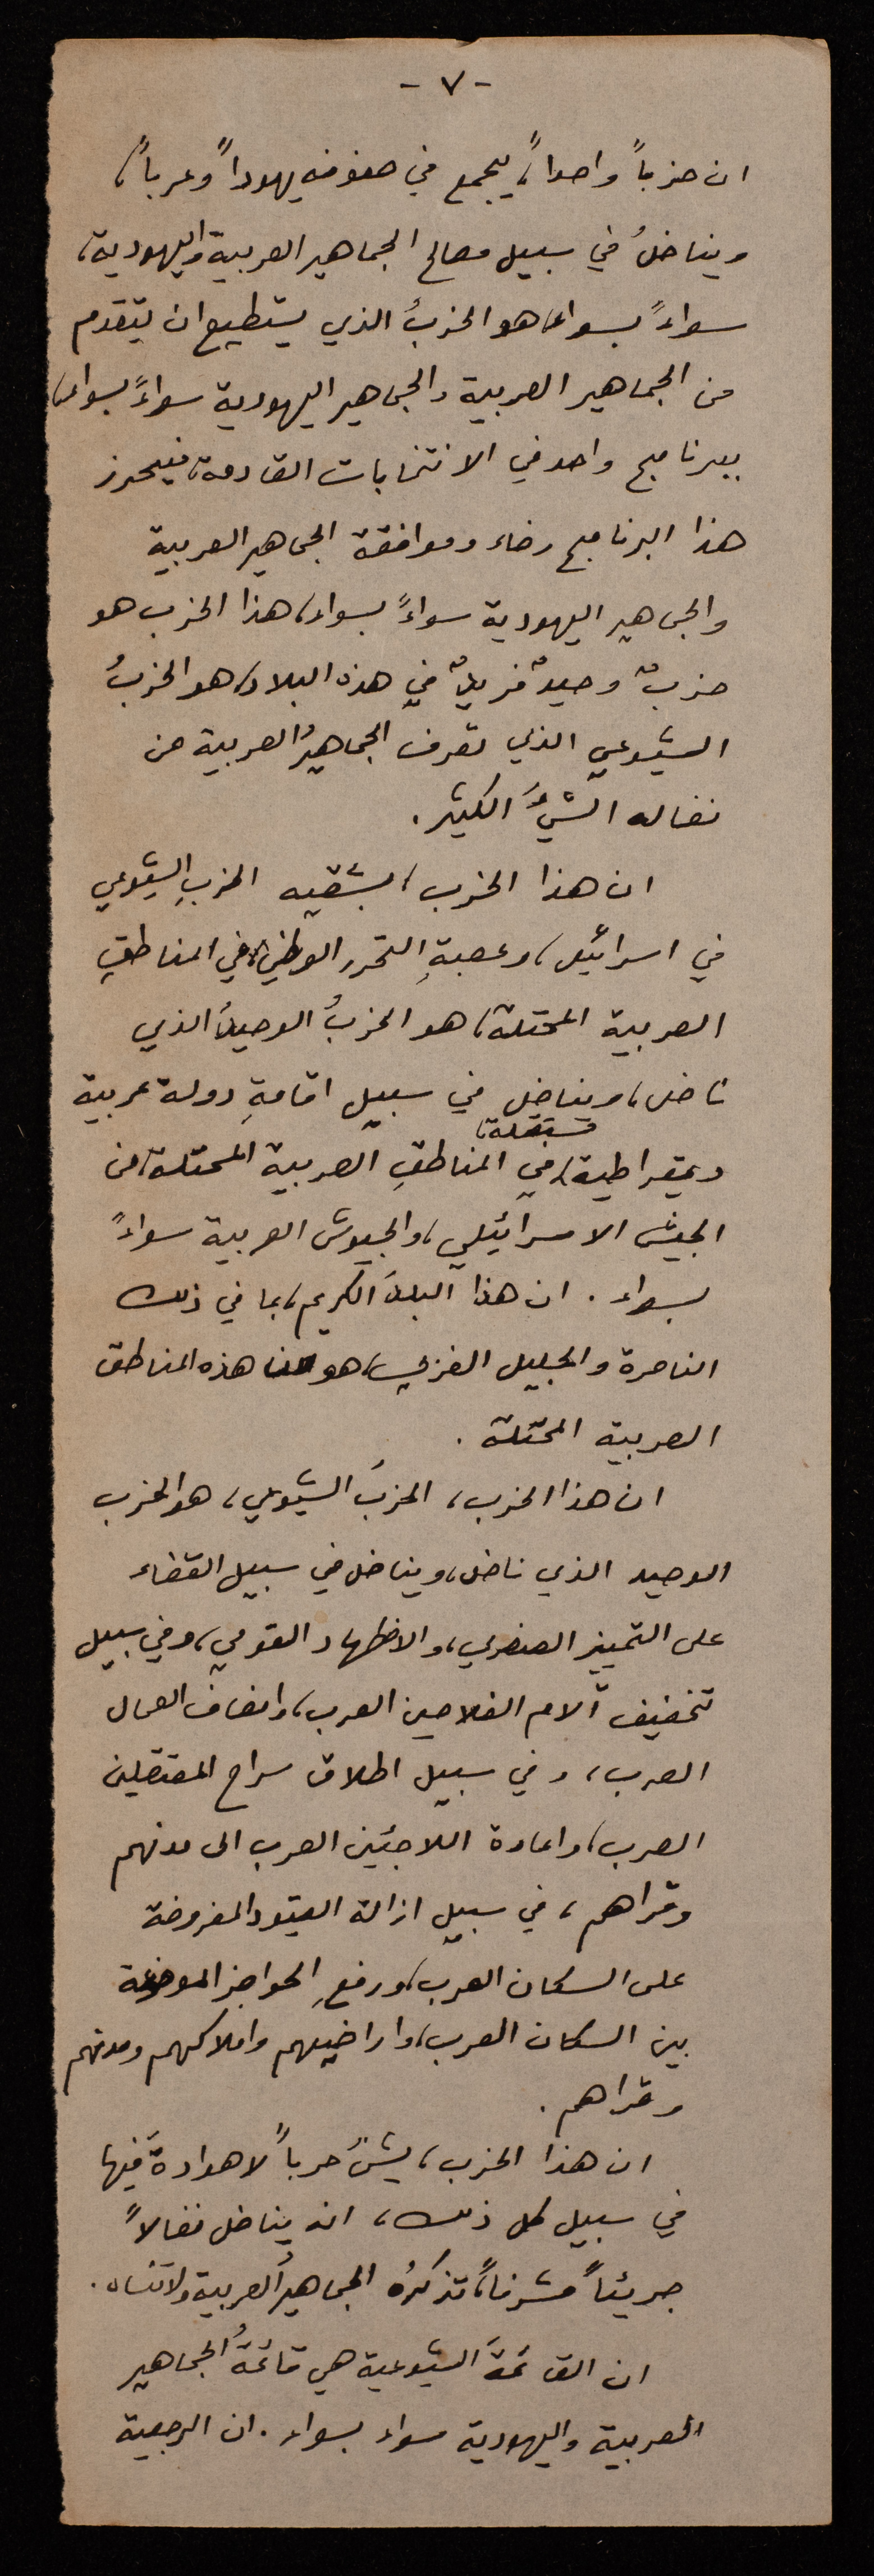 - ٧ -
ان حزباً واحداً، يجمع في صفوفه يهوداً وعرباً،
ويناضلُ في سبيل مصالح الجماهير العربية واليهودية،
سواءً بسواء، هو الحزبُ الذي يستطيع ان يتقدم
من الجماهير العربية والجماهير اليهودية سواءً بسواء،
ببرنامج واحد في الانتخابات القادمة، فيحرز
هذا البرنامج رضاء وموافقة الجماهير العربية
والجماهير اليهودية سواءً بسواء، هذا الحزب هو
حزبٌ وحيدٌ فريدٌ في هذه البلاد، هو الحزبُ
الشيوعي الذي تعرف الجماهيرُ العربية من
نضاله الشيءَ الكثير.
ان هذا الحزب، بشقيه الحزبِ الشيوعي
في اسرائيل، وعصبةِ التحرر الوطني، في المناطقِ
العربية المحتلة، هو الحزبُ الوحيدُ الذي
ناضل، ويناضل في سبيل اقامةِ دولة عربية
مستقلة،
ديمقراطية، في المناطقِ العربية المحتلة، من
الجيش الاسرائيلي، والجيوش العربية سواءً
بسواء. ان هذا البلدَ الكريم، بما في ذلك
الناصرة والجليل الغربي، هو من هذه المناطق
العربية المحتلة.
ان هذا الحزب، الحزبُ الشيوعي، هو الحزب
الوحيد الذي ناضل، ويناضل في سبيل القضاء
على التمييز العنصري، والاضطهاد القومي، وفي سبيل
تخفيف آلام الفلاحين العرب، وانصاف العمال
العرب، وفي سبيل اطلاق سراح المعتقلين
العرب، واعادة اللاجئين العرب الى مدنهم
وقراهم، في سبيل ازالة القيود المفروضة
على السكان العرب، ورفعِ الحواجز الموضوعة
بين السكان العرب، واراضيهم واملاكهم ومدنهم
وقراهم.
ان هذا الحزب، يشنُ حرباً لا هوادةَ فيها
في سبيل كل ذلك، انه يناضل نضالاً
جريئاً مشرفاً، تذكرُه الجماهيرُ العربية ولا تنساه.
ان القائمةَ الشيوعية هي قائمةُ الجماهير
العربية واليهودية سواء بسواء. ان الرجعية